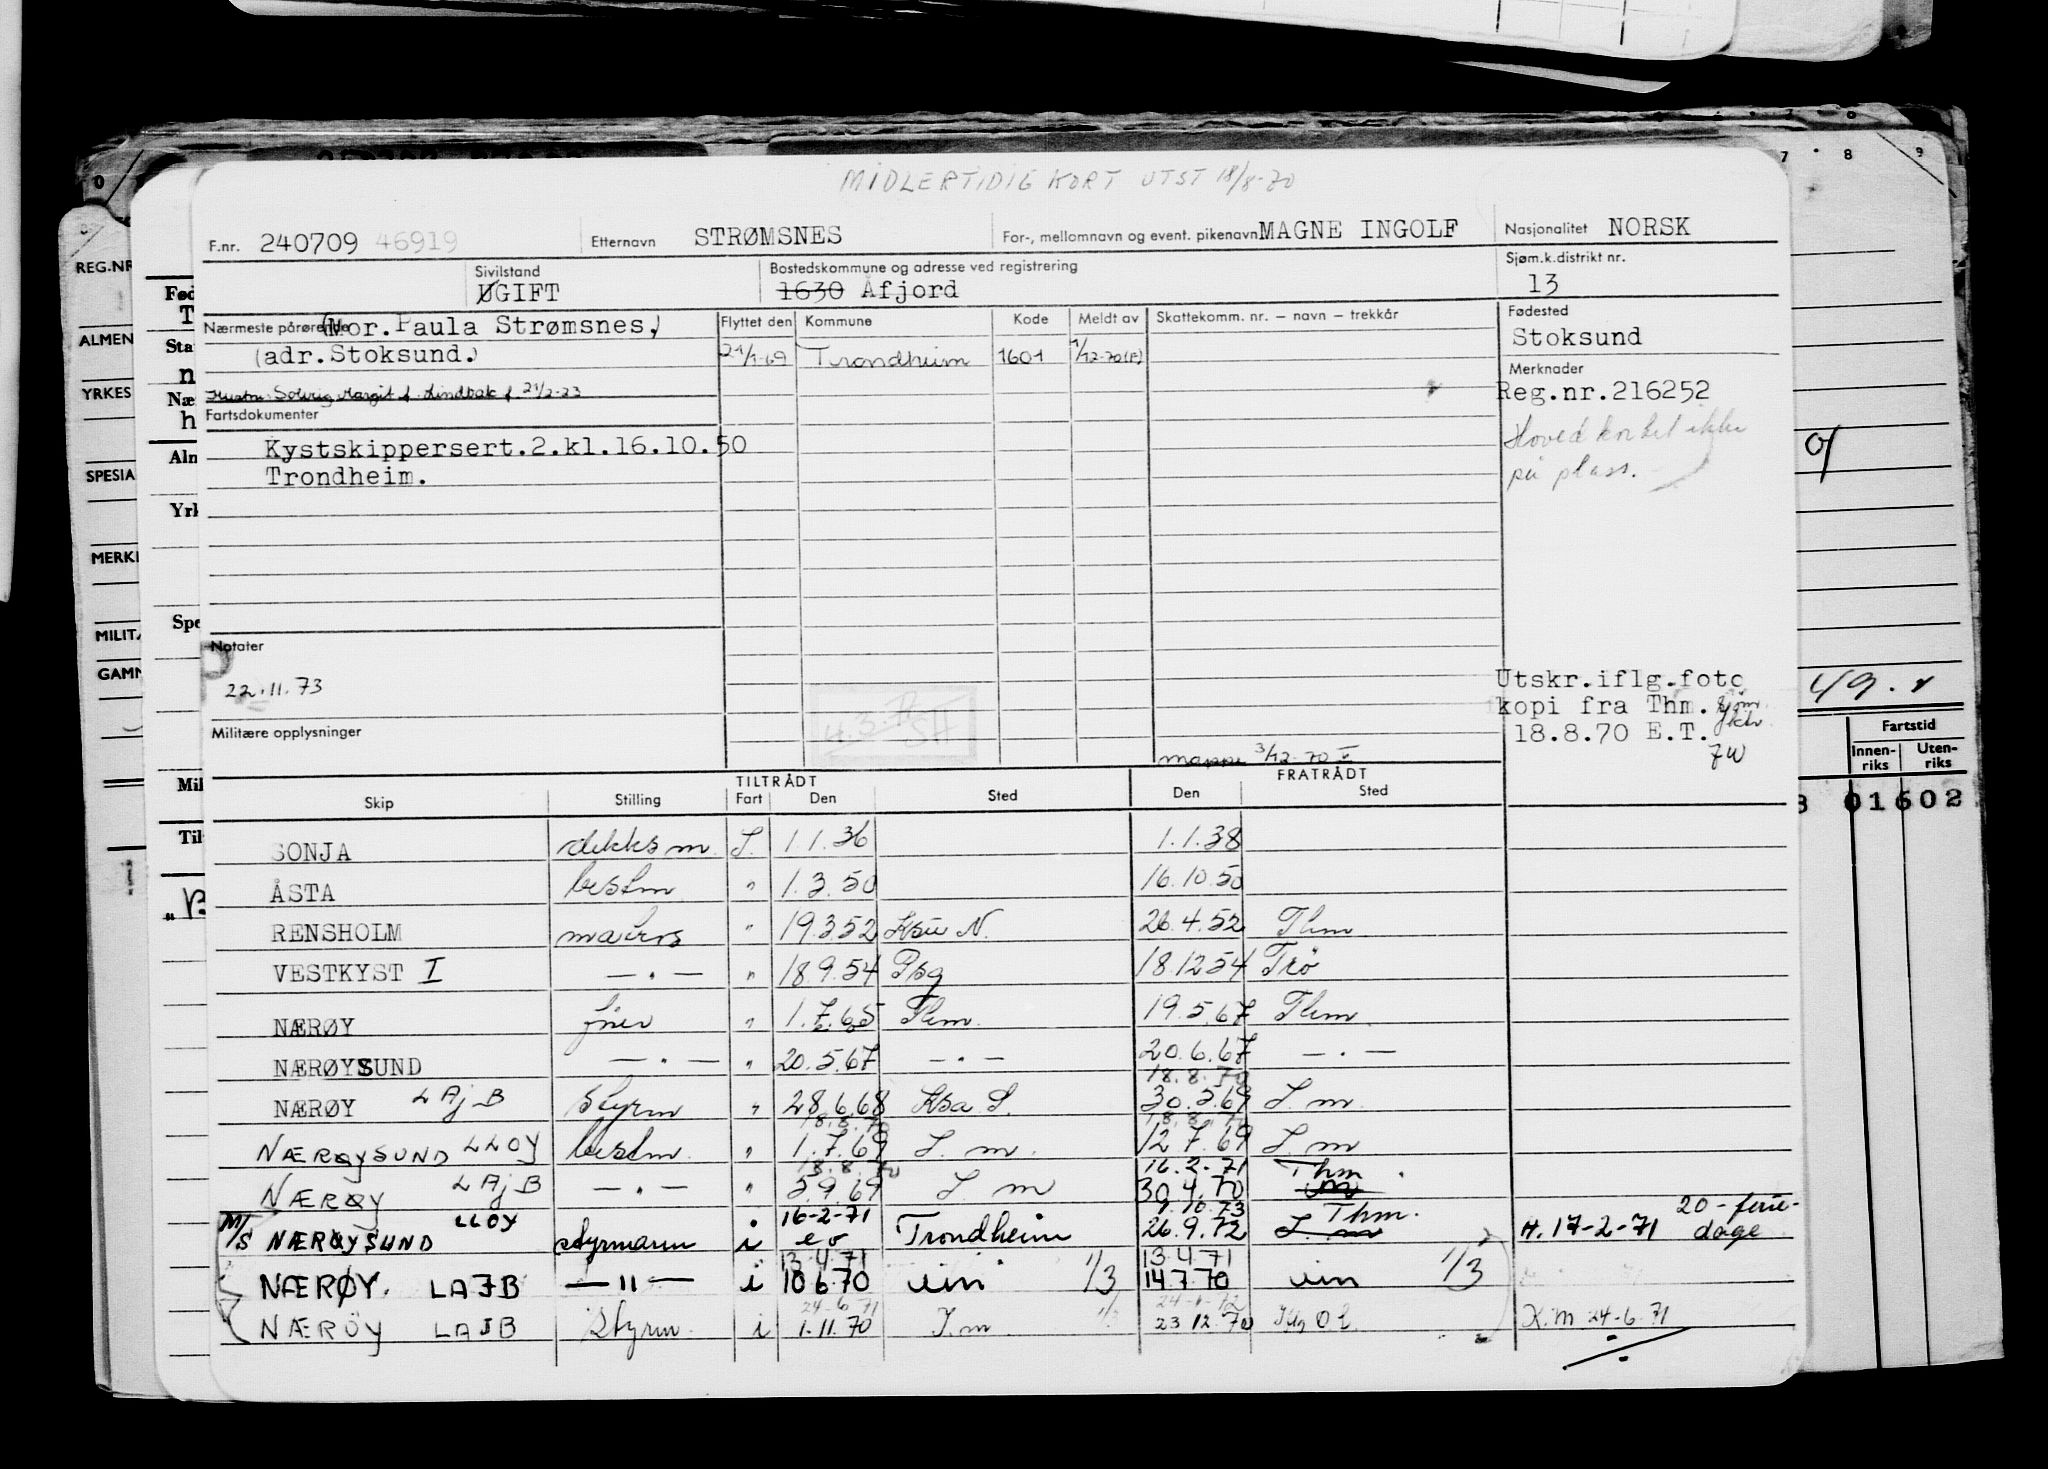 MIDLERTIDIG KORT UTST 18/8-70
F.nr. 240709 46919 Etternavn STRØMSNES For-, mellomnavn og event. pikenavn MAGNE INGOLF Nasjonalitet NORSK
Sivilstand UGIFT Bostedskommune og adresse ved registrering 1630 Åfjord Sjøm.k.distrikt nr. 13
Nærmeste pårørende (Mor. Paula Strømsnes,) Flyttet den Kommune Kode Meldt av Skattekomm. nr. – navn – trekkår Fødested
(adr. Stoksund.) 21/1-69 Trondheim 1601 1/12-70 (F) Stoksund
Hustru Solveig Margit f. Lindbak f. 21/2-23 Merknader
Fartsdokumenter Reg.nr.216252
Kystskippersert.2.kl.16.10.50 Hovedkortet ikke
Trondheim. på plass.
Notater
22.11.73
Utskr.iflg.foto
kopi fra Thm.
18.8.70 E.T.
Militære opplysninger
mappe 3/12-70
TILTRÅDT FRATRÅDT
Skip Stilling Fart Den Sted Den Sted
SONJA dekksm. I. 1.1.36 1.1.38
ÅSTA bestm " 1.3.50 16.10.50
RENSHOLM matros " 19.3.52 Ksu N. 26.4.52 Thm
VESTKYST I — " — " 18.9.54 Psg 18.12.54 Trö
NÆRØY " 1.7.65 Thm. 19.5.67 Thm.
NÆRØYSUND — " — " 20.5.67 — " — 20.6.67 — " —
18.8.70
NÆRØY LAJB Styrm " 28.6.68 Ksa S. 30.5.69 I.m.
18.8.70
NÆRØYSUND LLOY bestm. " 1.7.69 I.m. 12.7.69 I.m
18.8.70 16.2.71 Thm
NÆRØY LAJB — " — " 5.9.69 I m 30.4.70
16-2-71 9.10.73 Thm.
M/S NÆRØYSUND LLOY styrmann i Trondheim 26.9.72 I.m H. 17-2-71 20-feriedage
13.4.71 13.4.71
NÆRØY. LAJB — " — i 10.6.70 um 1/3 14.7.70 um 1/3
24.6.71
NÆRØY LAJB Styrm. i 1.11.70 I.m. 1/3 23.12.70 K.M 24-6-71
REG.NR
ALMEN
YRKES
SPESIA
MERK
MILIT
GAMM
Fød
Sta
Næ
Aln
Yrk
Spe
Mil
Til
Fartstid
Innenriks Utenriks
01602
7 8 9